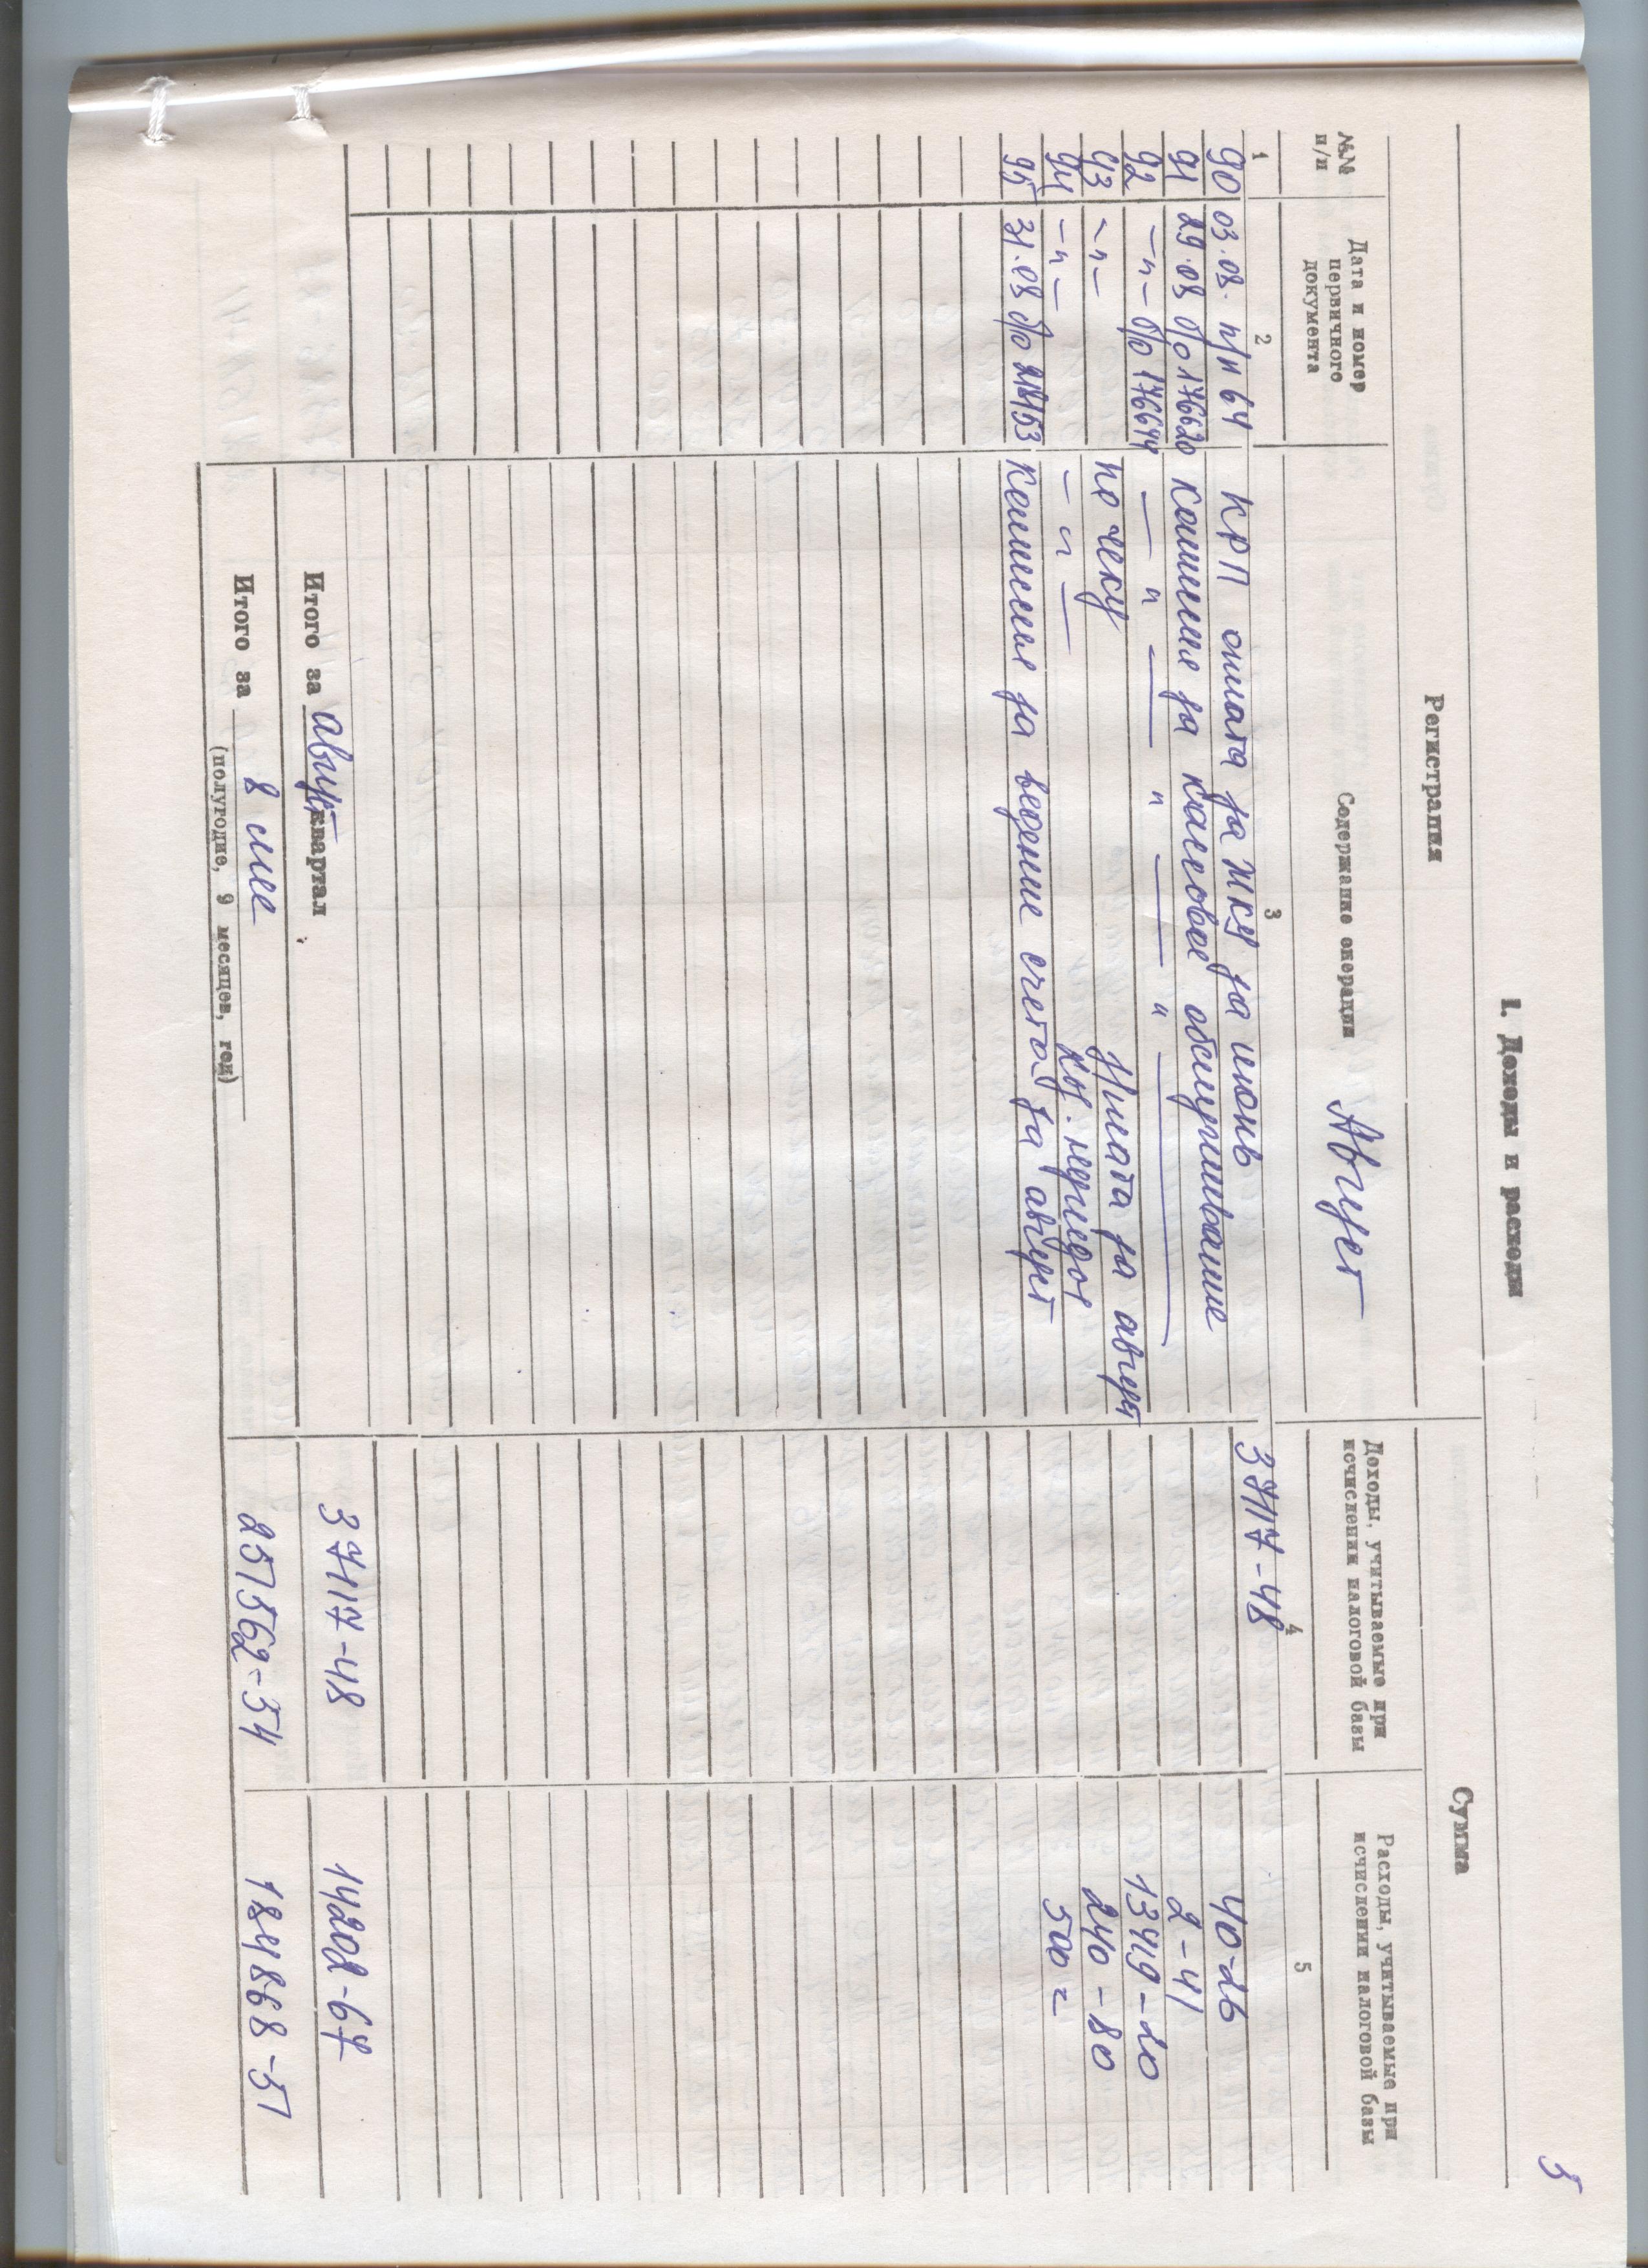 5
I. Доходы и расходы
Регистрация Сумма
№№ п/п Дата и номер первичного документа Содержание операции Август Доходы, учитываемые при исчислении налоговой базы Расходы, учитываемые при исчислении налоговой базы
1 2 3 4 5
90 03.08. п/п 64 КРП оплата за ЖКУ за июнь 37117-48
91 29.08 б/о 176620 Комиссия за кассовое обслуживание 40-26
92 -"- б/о 176674 — " — " — " — 2-41
93 -"- по чеку Зарплата за август 13419-20
94 -"- - " - 240-80
95 31.08 б/о Комиссия за ведение счета за август 500=
Итого за август квартал 37117-48 14202-67
Итого за 8 мес 257562-54 184868-51
(полугодие, 9 месяцев, год)